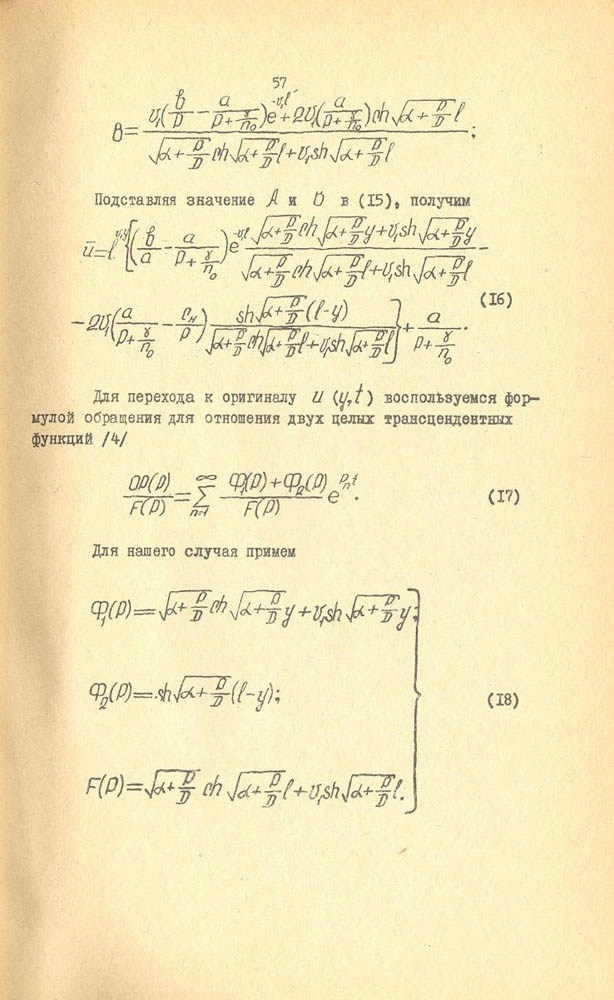 57
B = \frac{v_1(\frac{b}{p} - \frac{a}{p + \frac{\gamma}{n_0}}) e^{-v_1 l} + 2v_1(\frac{a}{p + \frac{\gamma}{n_0}}) ch\sqrt{\alpha + \frac{p}{D}} l}{\sqrt{\alpha + \frac{p}{D}} ch\sqrt{\alpha + \frac{p}{D}} l + v_1 sh\sqrt{\alpha + \frac{p}{D}} l};
Подставляя значение A и B в (15), получим
\bar{u} = l^{v_1 y} \{ (\frac{b}{a} - \frac{a}{p + \frac{\gamma}{n_0}}) e^{-v_1 l} \frac{\sqrt{\alpha + \frac{p}{D}} ch\sqrt{\alpha + \frac{p}{D}} y + v_1 sh\sqrt{\alpha + \frac{p}{D}} y}{\sqrt{\alpha + \frac{p}{D}} ch\sqrt{\alpha + \frac{p}{D}} l + v_1 sh\sqrt{\alpha + \frac{p}{D}} l} -
- 2v_1 (\frac{a}{p + \frac{\gamma}{n_0}} - \frac{c_н}{p}) \frac{sh\sqrt{\alpha + \frac{p}{D}} (l-y)}{\sqrt{\alpha + \frac{p}{D}} ch\sqrt{\alpha + \frac{p}{D}} l + v_1 sh\sqrt{\alpha + \frac{p}{D}} l} \} + \frac{a}{p + \frac{\gamma}{n_0}}. (16)
Для перехода к оригиналу u (y, t) воспользуемся фор-
мулой обращения для отношения двух целых трансцендентных
функций /4/
\frac{\varphi(p)}{F(p)} = \sum_{n=1}^{\infty} \frac{Ф_1(p) + Ф_2(p)}{F(p)} e^{p_n t}. (17)
Для нашего случая примем
Ф_1(p) = \sqrt{\alpha + \frac{p}{D}} ch\sqrt{\alpha + \frac{p}{D}} y + v_1 sh\sqrt{\alpha + \frac{p}{D}} y;
Ф_2(p) = sh\sqrt{\alpha + \frac{p}{D}} (l-y); (18)
F(p) = \sqrt{\alpha + \frac{p}{D}} ch\sqrt{\alpha + \frac{p}{D}} l + v_1 sh\sqrt{\alpha + \frac{p}{D}} l.